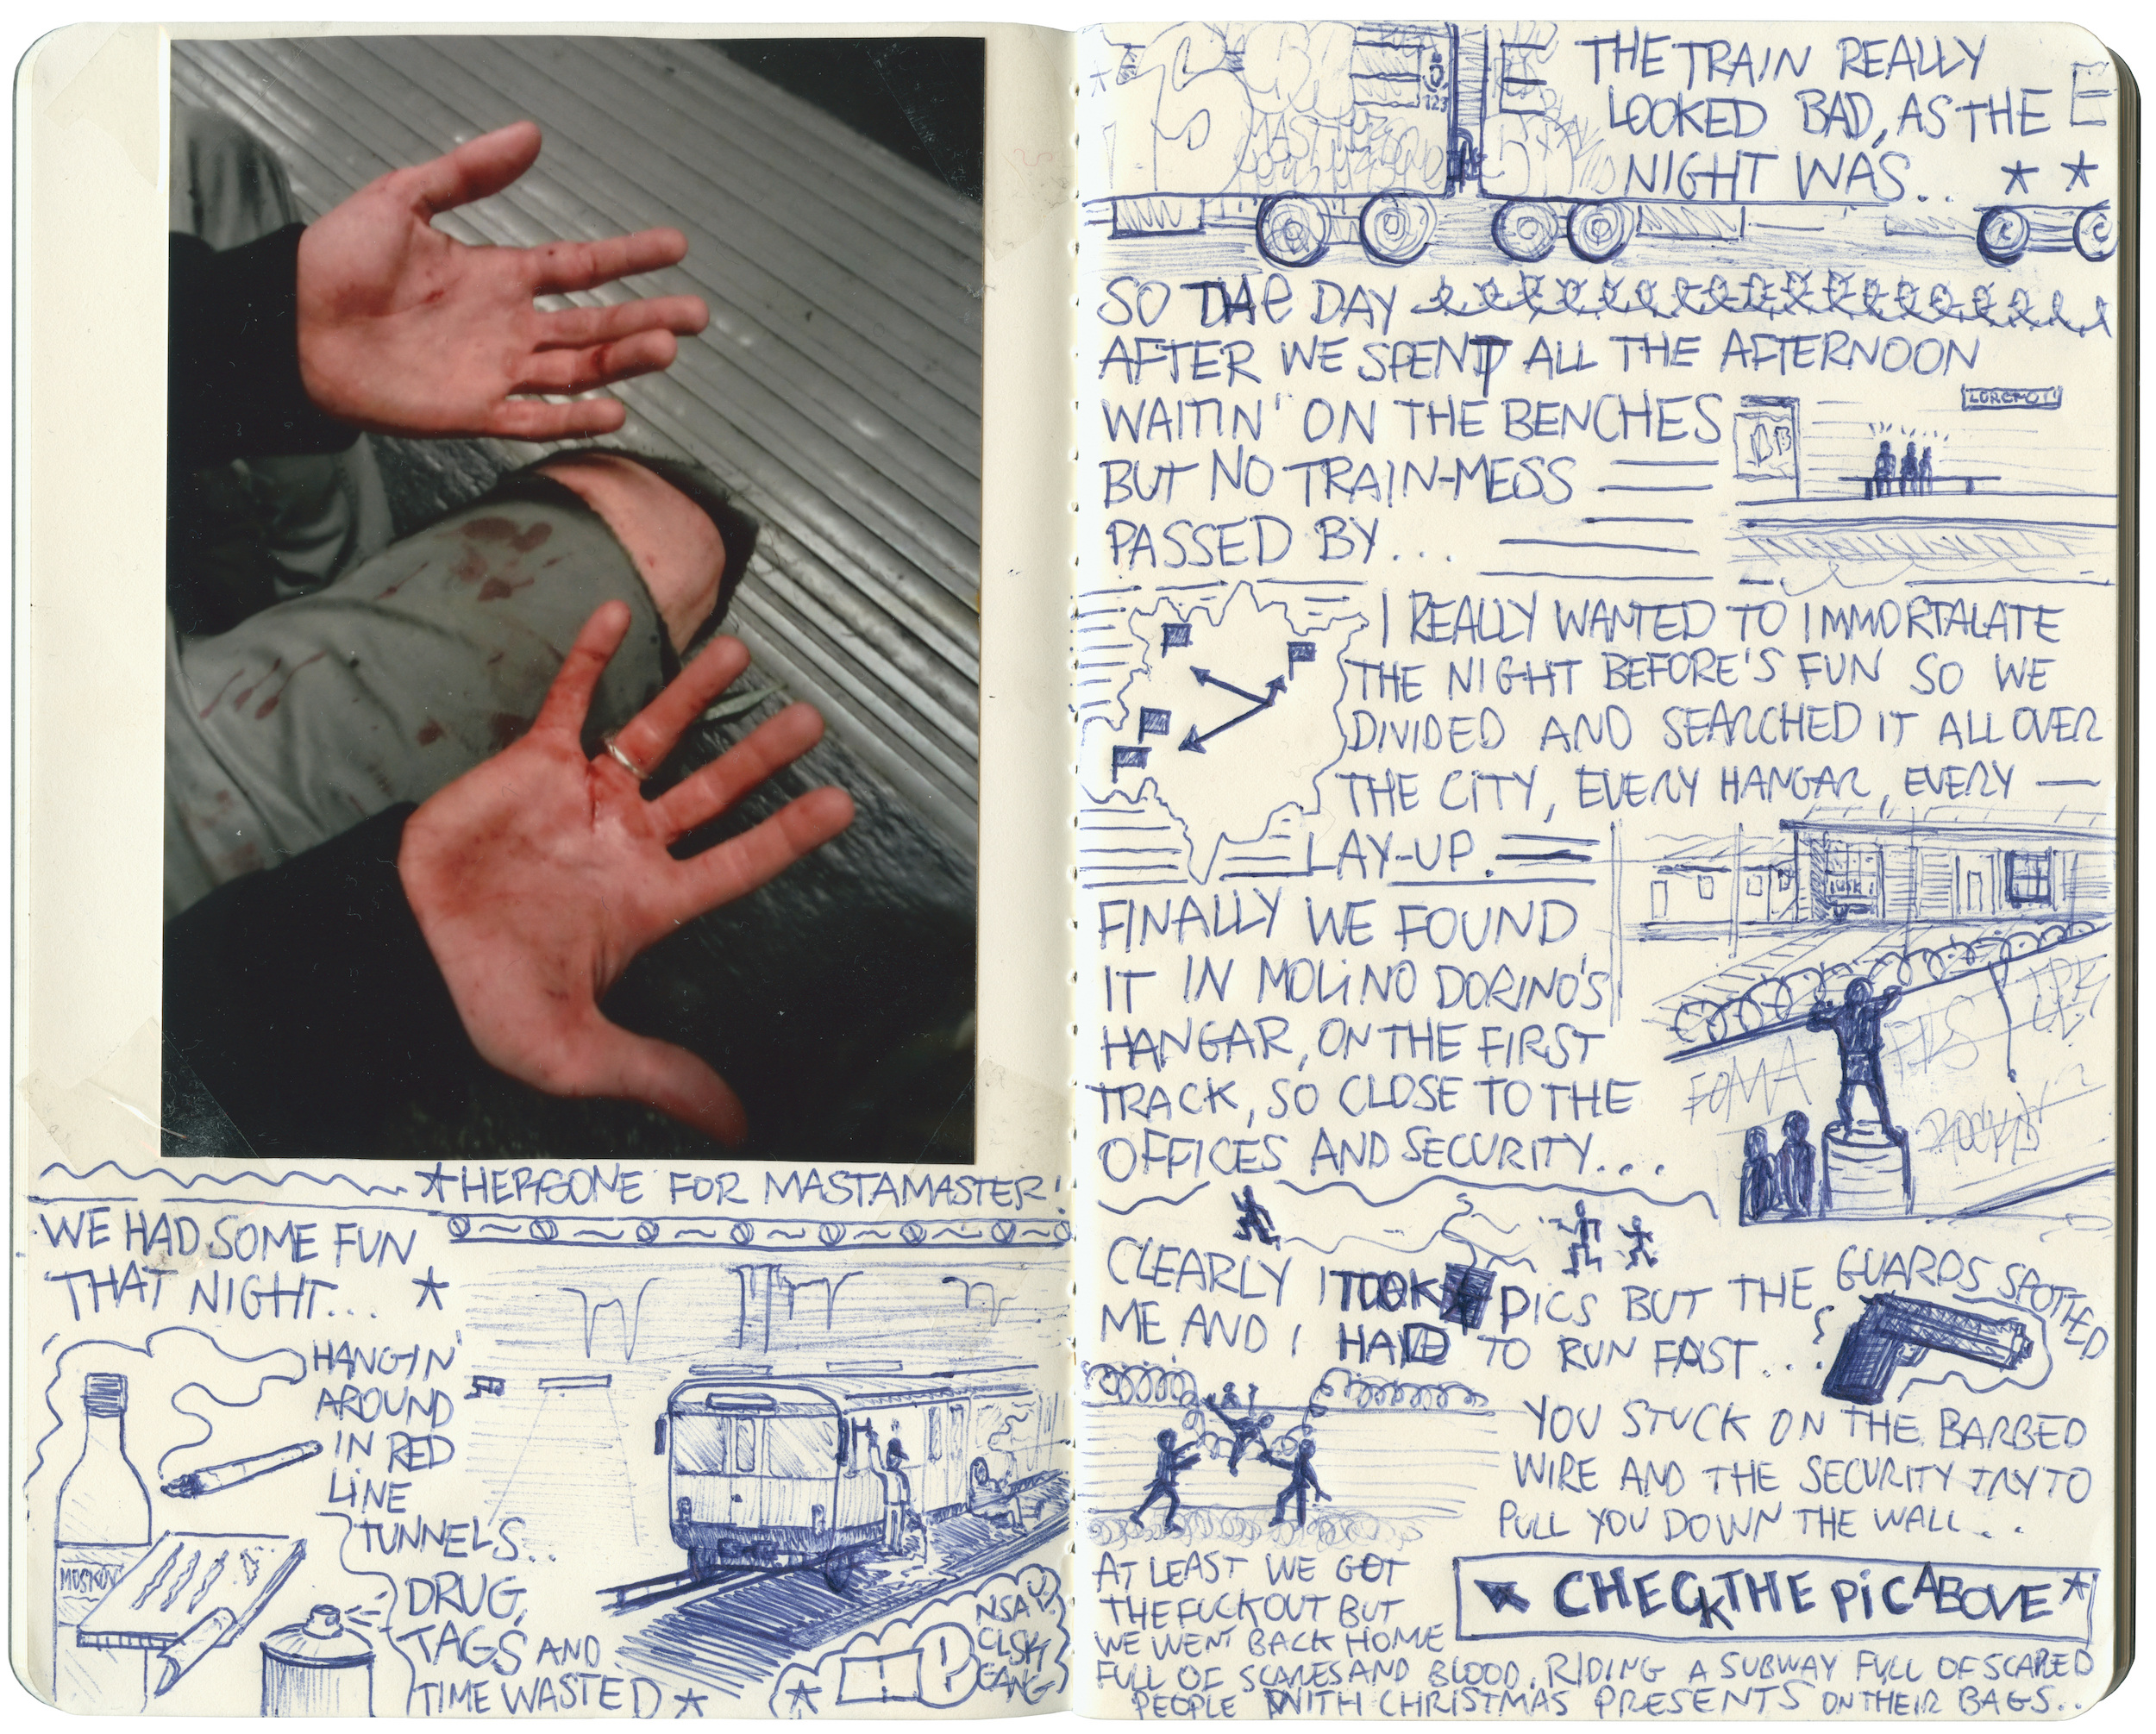 *HEPGONE FOR MASTAMASTER!
WE HAD SOME FUN
THAT NIGHT... *
HANGIN'
AROUND
IN RED
LINE
TUNNELS..
DRUG,
TAGS AND
TIME WASTED *
MOSKOV
NSA
CLSK
GANG
123
THE TRAIN REALLY
LOOKED BAD, AS THE
NIGHT WAS.. * *
SO THE DAY
AFTER WE SPENT ALL THE AFTERNOON
WAITIN' ON THE BENCHES
BUT NO TRAIN-MESS
PASSED BY...
I REALLY WANTED TO IMMORTALATE
THE NIGHT BEFORE'S FUN SO WE
DIVIDED AND SEARCHED IT ALL OVER
THE CITY, EVERY HANGAR, EVERY —
LAY-UP.
FINALLY WE FOUND
IT IN MOLINO DORINO'S
HANGAR, ON THE FIRST
TRACK, SO CLOSE TO THE
OFFICES AND SECURITY...
FOMA
CLEARLY I TOOK PICS BUT THE GUARDS SPOTTED
ME AND I HAD TO RUN FAST...
YOU STUCK ON THE BARBED
WIRE AND THE SECURITY TRY TO
PULL YOU DOWN THE WALL...
AT LEAST WE GOT
THE FUCK OUT BUT
WE WENT BACK HOME
FULL OF SCARES AND BLOOD, RIDING A SUBWAY FULL OF SCARED
PEOPLE WITH CHRISTMAS PRESENTS ON THEIR BAGS..
CHECK THE PIC ABOVE*